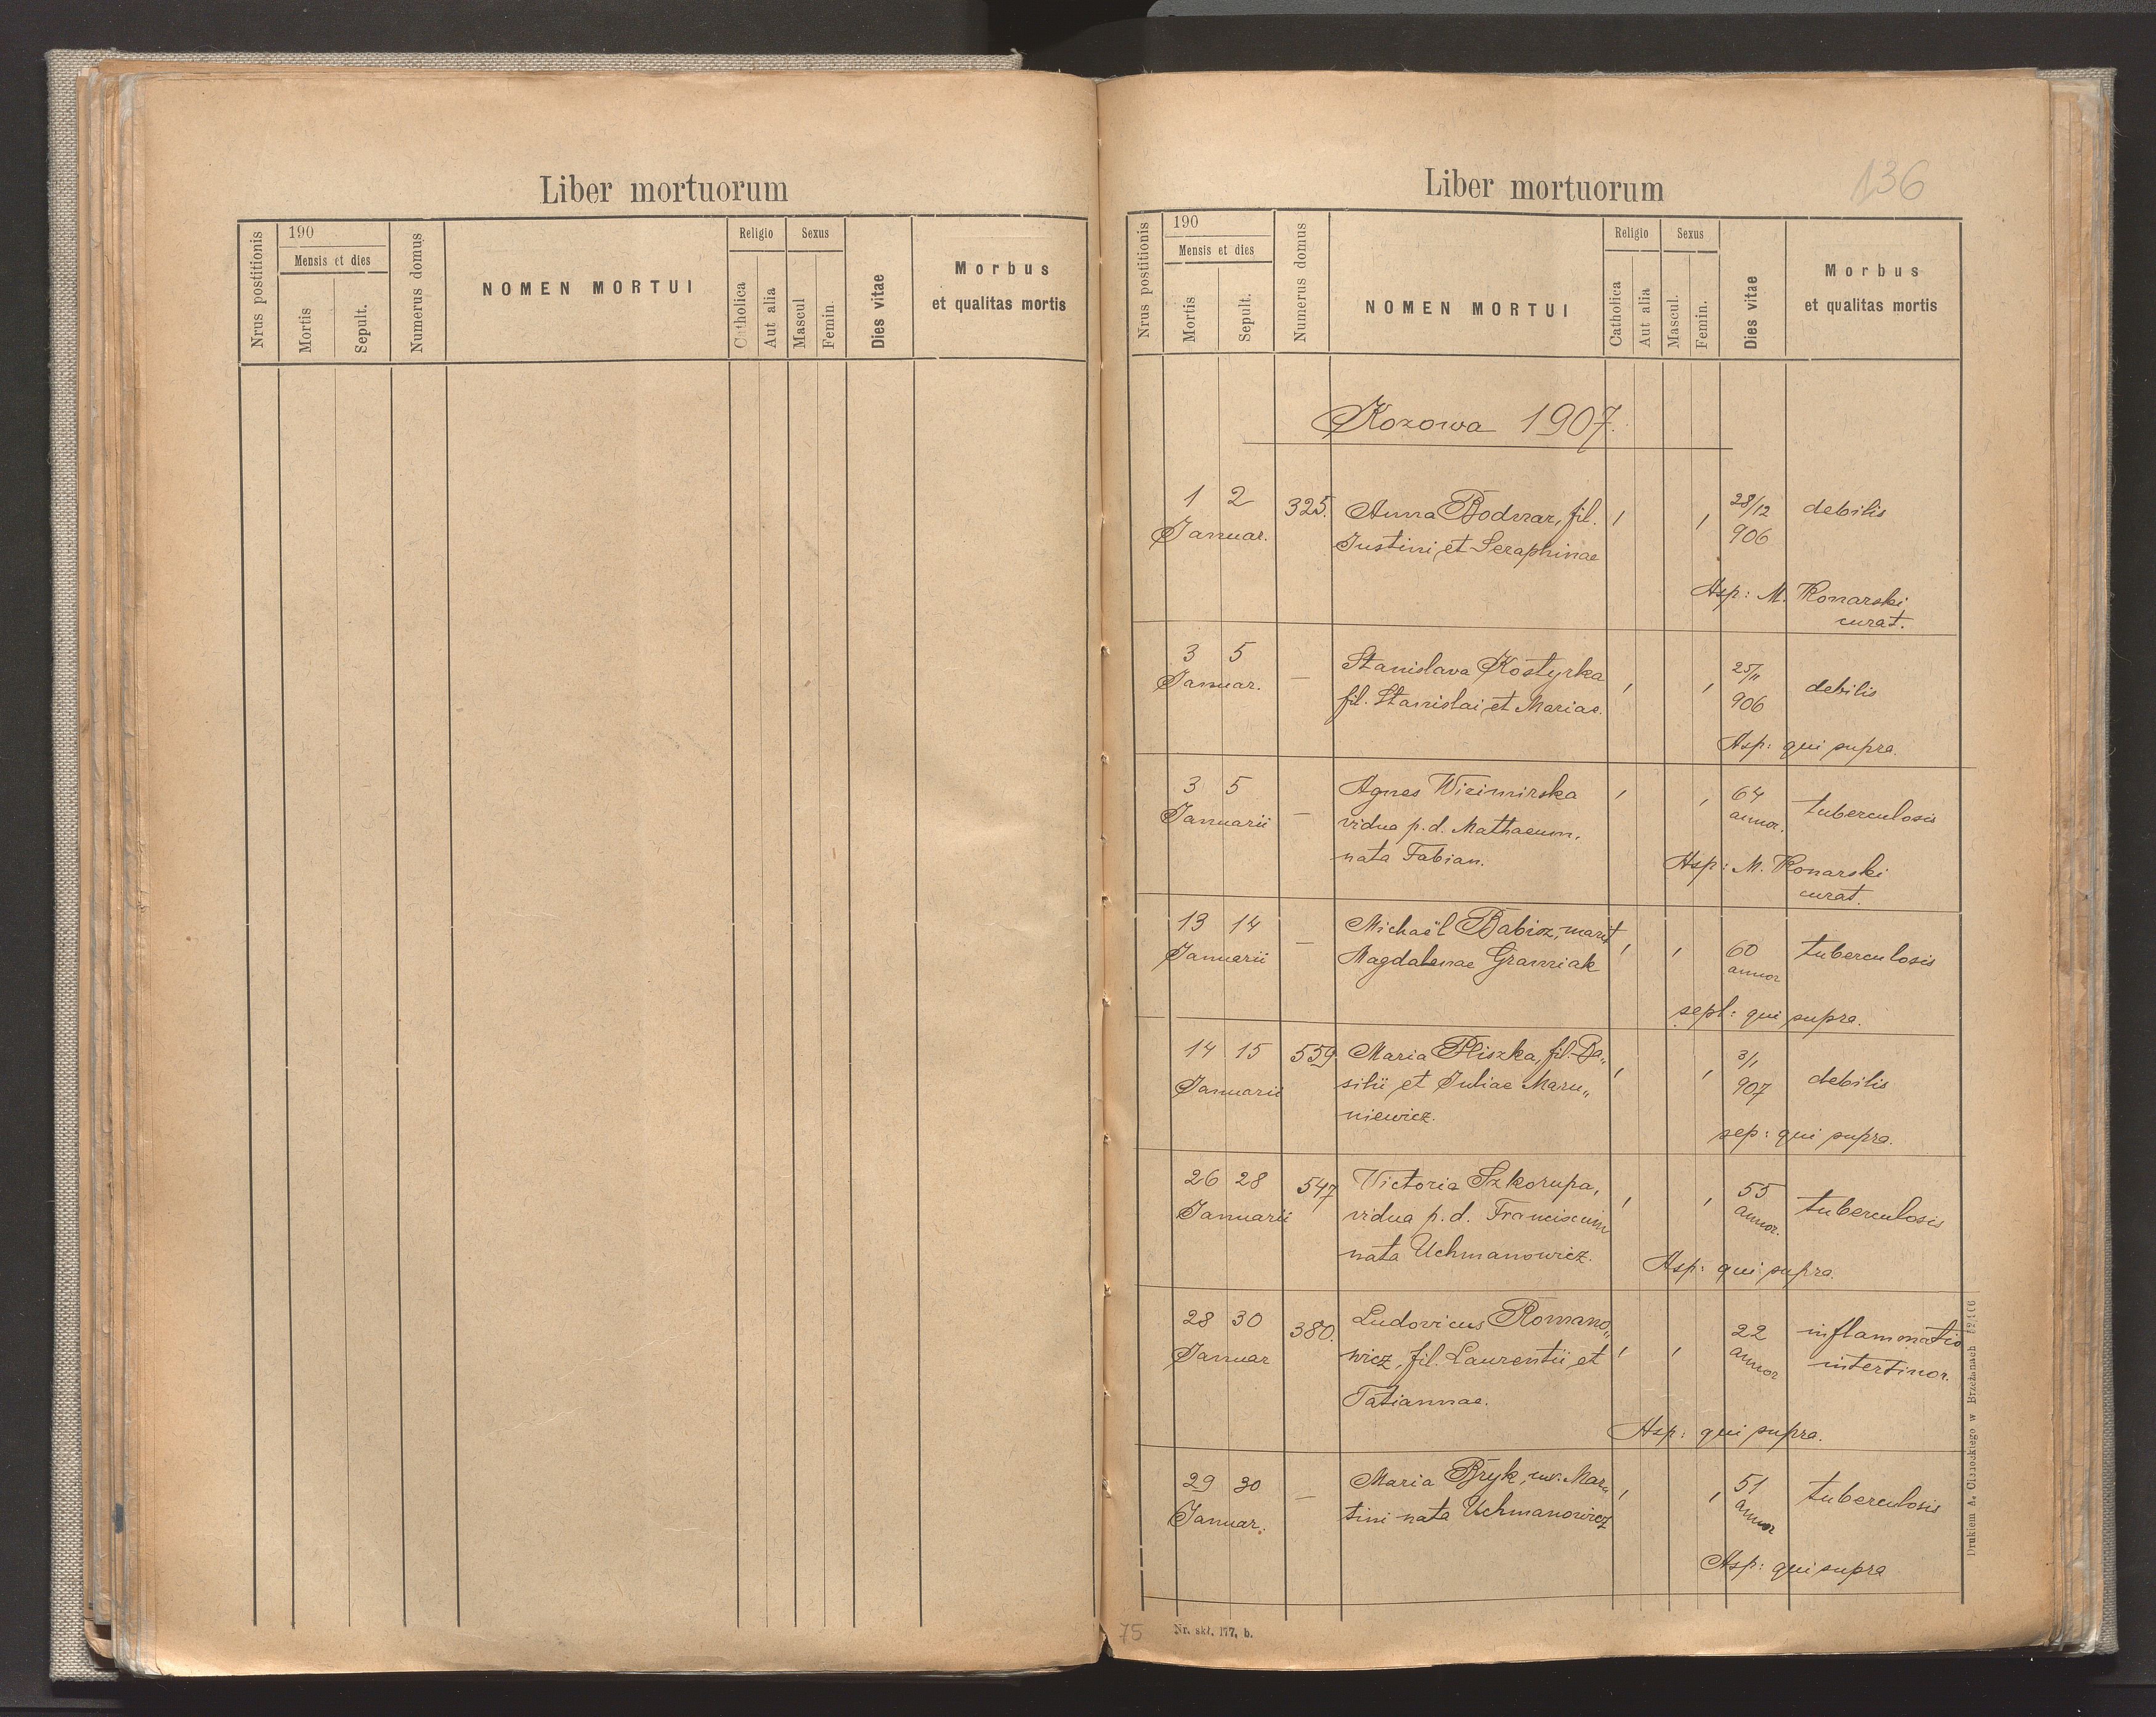 Liber mortuorum
Nrus postitionis
190
Mensis et dies
Mortis
Sepult.
Numerus domus
NOMEN MORTUI
Religio
Catholica
Aut alia
Sexus
Mascul
Femin.
Dies vitae
Morbus
et qualitas mortis
Liber mortuorum
136
Nrus postitionis
190
Mensis et dies
Mortis
Sepult.
Numerus domus
NOMEN MORTUI
Religio
Catholica
Aut alia
Sexus
Mascul.
Femin.
Dies vitae
Morbus
et qualitas mortis
Kozowa 1907.
1 2 325. Anna Bodnar, fil. 28/12 debilis
Januar. Justini et Seraphinae 906
Asp: M. Konarski
curat.
3 5 Stanislava Kostyrka 25/11 debilis
Januar. — fil. Stanislai et Mariae. 906
Asp: qui supra.
3 5 Agnes Wizimirska 64 tuberculosis
Januarii — vidua p. d. Mathaeum, annor.
nata Fabian.
Asp: M. Konarski
curat.
13 14 — Michaël Babisz, marit
Januarii Magdalenae Graniak 60 tuberculosis
annor
sepl: qui supra.
14 15 559. Maria Pliszka, fil. Ba„ 3/1
Januarii silii et Juliae Maru„ 907 debilis
niewicz.
sep: qui supra.
26 28 547 Victoria Szkorupa, 55 tuberculosis
Januarii vidua p. d. Franciscum annor.
nata Uchmanowicz.
Asp: qui supra.
28 30 380. Ludovicus Romano„ 22 inflammatio
Januar wicz, fil. Laurentii et annor intestinor.
Tatiannae.
Asp: qui supra.
29 30 — Maria Bryk, ux. Mar„ 51 tuberculosis
Januar. tini nata Uchmanowicz annor
Asp: qui supra
75
Nr. skł. 177, b.
Drukiem A. w Brzeżanach